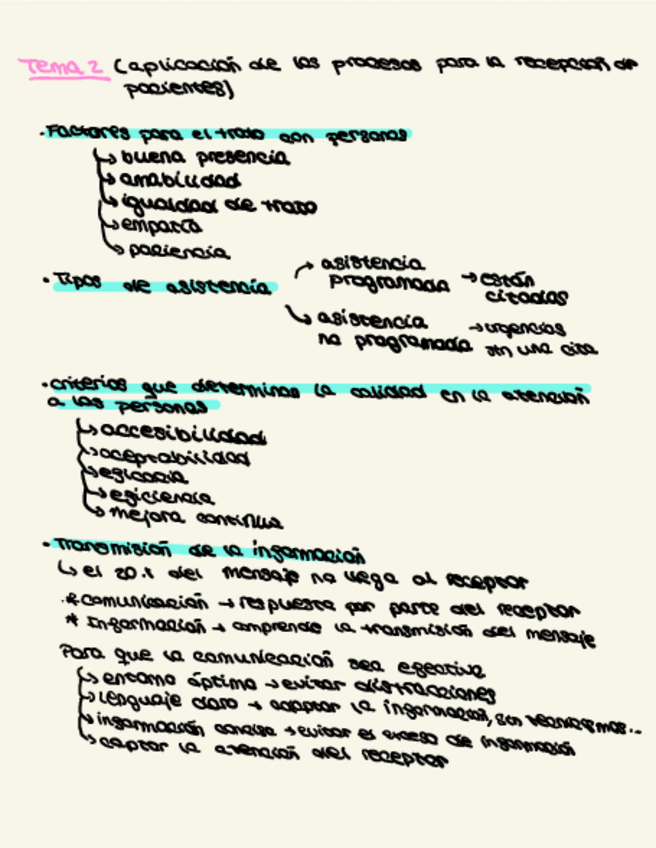 Tema 2 (aplicación de los procesos para la recepción de
pacientes)
• Factores para el trato con personas
↳ buena presencia
↳ amabilidad
↳ igualdad de trato
↳ empatía
↳ paciencia
• Tipos de asistencia → asistencia programada → están citadas
↳ asistencia no programada → urgencias sin una cita
• criterios que determinan la calidad en la atención
a las personas
↳ accesibilidad
↳ aceptabilidad
↳ eficacia
↳ eficiencia
↳ mejora continua
• Transmisión de la información
↳ el 20% del mensaje no llega al receptor
* Comunicación → respuesta por parte del receptor
* Información → comprende la transmisión del mensaje
Para que la comunicación sea efectiva
↳ entorno óptimo → evitar distracciones
↳ lenguaje claro → adaptar la información, sin tecnicismos...
↳ información concisa → evitar el exceso de información
↳ captar la atención del receptor